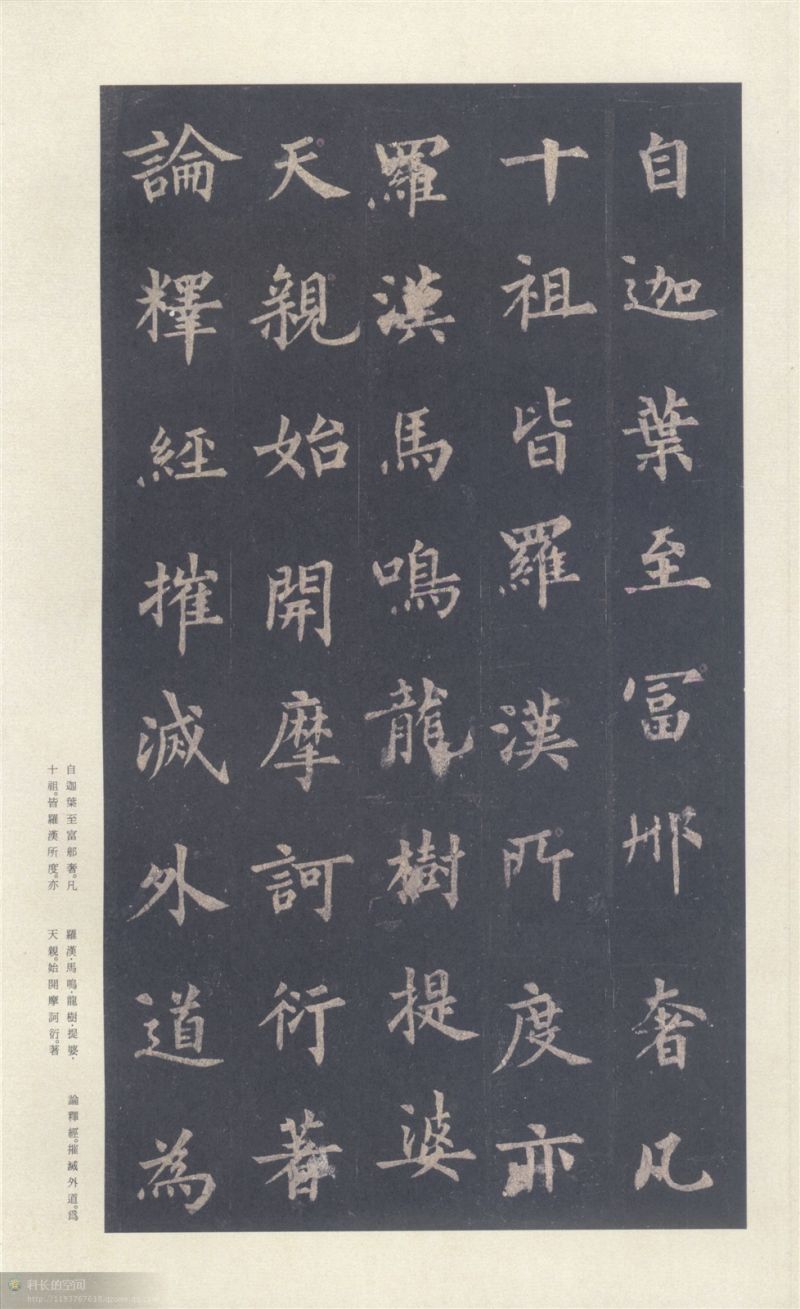 自迦葉至冨那奢凡
十祖皆羅漢所度亦
羅漢馬鳴龍樹提婆
天親始開摩訶衍著
論釋經摧滅外道為
自迦葉至富那奢。凡
十祖。皆羅漢所度。亦
羅漢·馬鳴·龍樹·提婆·
天親。始開摩訶衍。著
論釋經。摧滅外道。爲
科长的空间